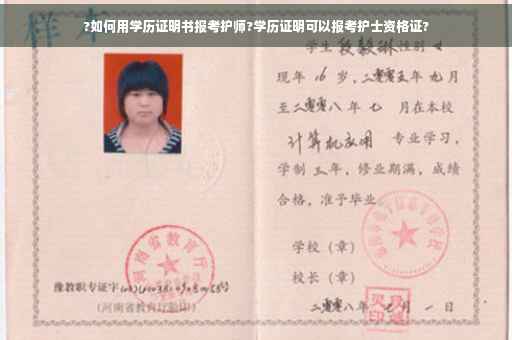 ?如何用学历证明书报考护师?学历证明可以报考护士资格证?
样本
学生段毅琳性别女
现年16岁,二零零五年九月
至二零零八年七月在本校
计算机应用 专业学习,
学制三年,修业期满,成绩
合格,准予毕业
学校(章)
校长(章)
二零零八年七月一日
河南省教育厅
豫教职专证字
(河南省教育厅验印)